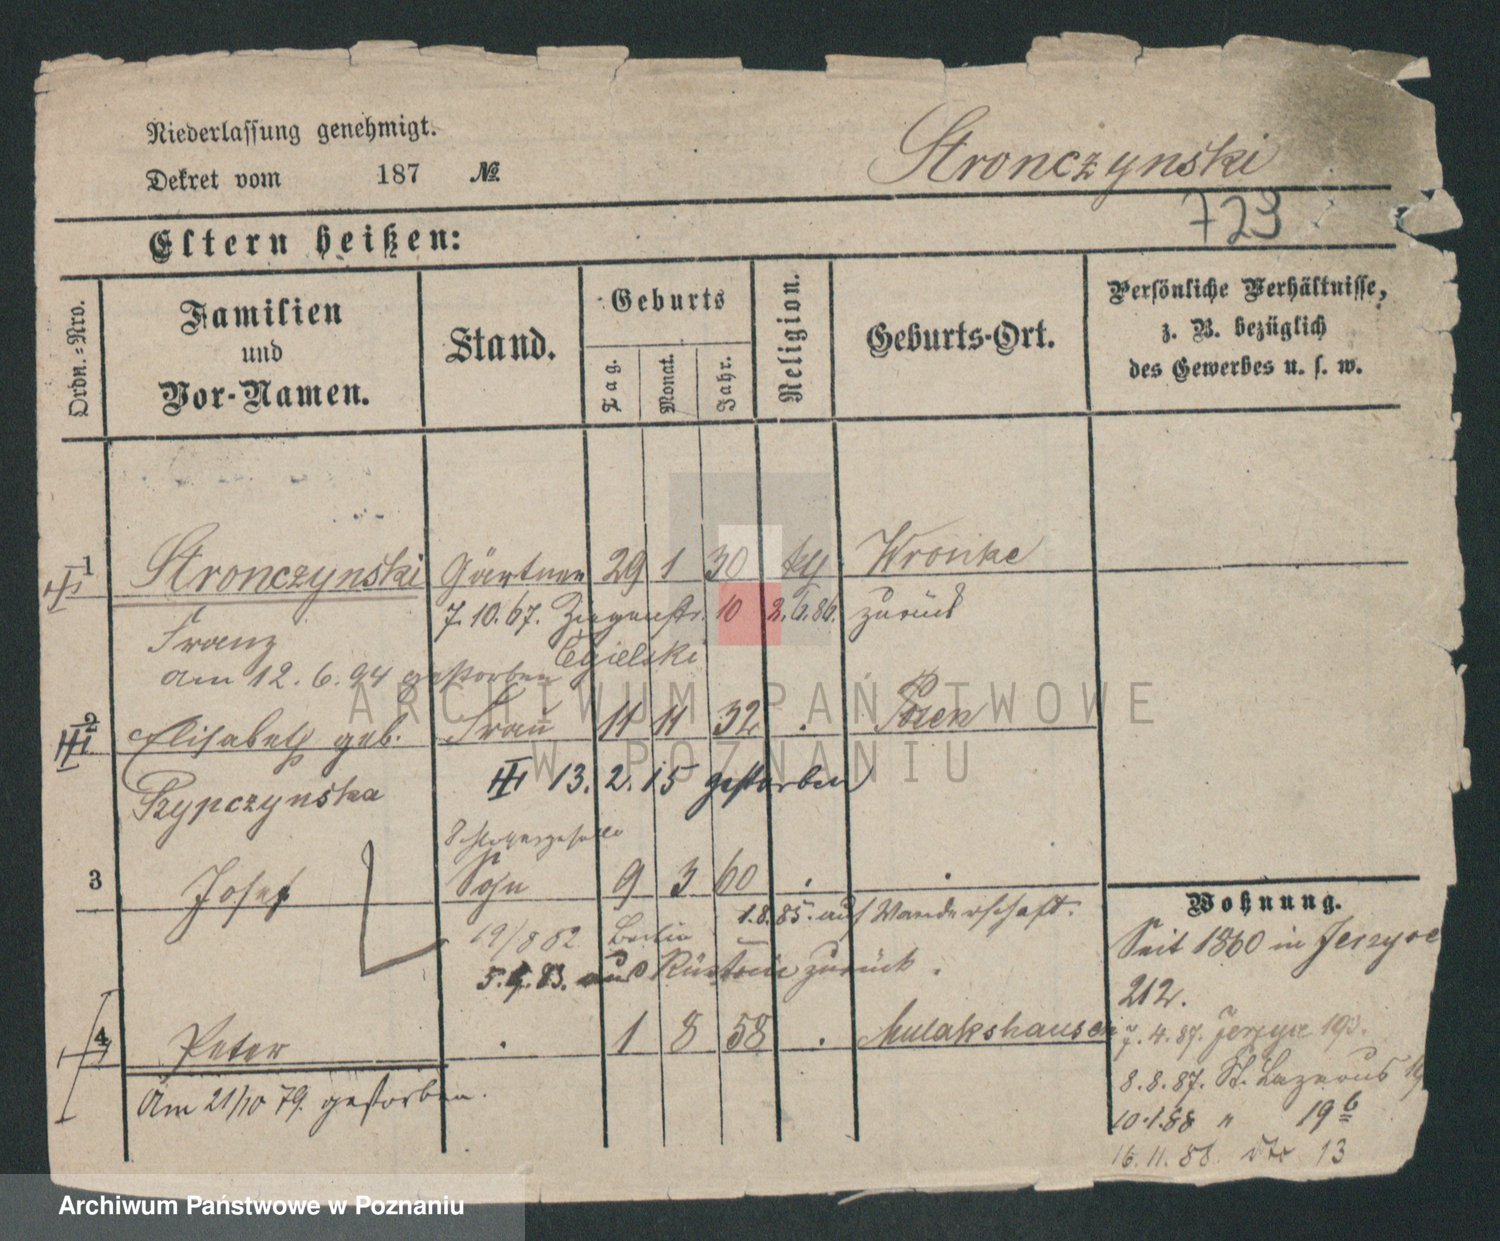 Niederlassung genehmigt.
Stronczynski
Dekret vom 187 №
723
Eltern heißen:
Ordn.=Nro.
Familien
und
Vor-Namen.
Stand.
Geburts
Tag.
Monat.
Jahr.
Religion.
Geburts-Ort.
Persönliche Verhältnisse,
z. B. bezüglich
des Gewerbes u. s. w.
1 Stronczynski Gärtner 29 1 30 Wronke
7.10.67. 10 2.6.86. zurück
Franz
Cegielski
am 12.6.94 gestorben
2 Elisabeth geb. Frau 11 11 32 . Posen
III 13.2.15 gestorben
Szypczynska
3 Josef Sohn 9 3 60 . .
1.8.85. auf Wanderschaft.
19/8 82 Berlin
5.9.83. aus Küstrin zurück.
4 Peter . 1 8 58 . Mulakshausen
Am 21/10 79. gestorben.
Wohnung.
Seit 1860 in Jerzyce
212.
7.4.87. Jerzyce 193.
8.8.87. St. Lazarus 19
10.1.88 " 19 b
16.11.88 13
ARCHIWUM PAŃSTWOWE
W POZNANIU
Archiwum Państwowe w Poznaniu